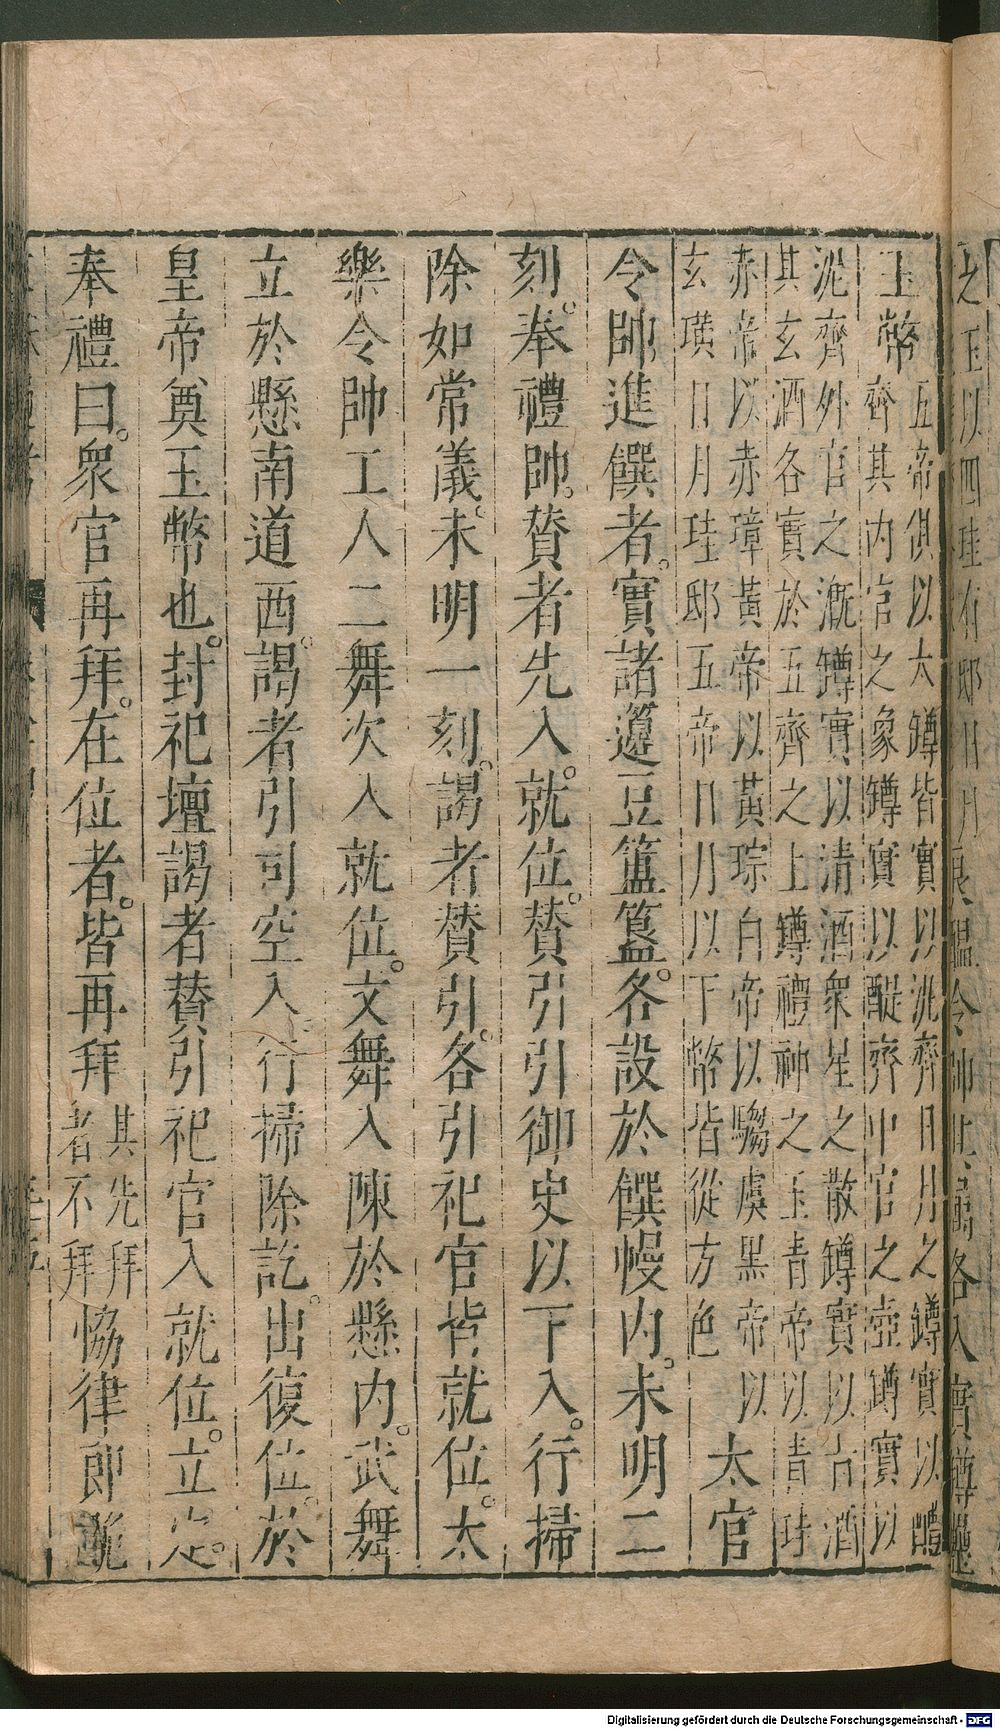 之玉以四珪有邸日月
各入實罇罍
玉幣五帝俱以太罇皆實以洮齊日月之罇實以醴
齊其內官之象罇實以醍齊中官之壺罇實以
泥齊外官之漑罇實以清酒衆星之散罇實以古酒
其玄酒各實於五齊之上罇禮神之玉青帝以青珪
赤帝以赤璋黃帝以黃琮白帝以騶虞黑帝以
玄璜日月珪邸五帝日月以下幣皆從方色太官
令帥進饌者。實諸籩豆簠簋。各設於饌幔內。未明二
刻。奉禮帥。贊者先入。就位。贊引引御史以下入。行掃
除如常儀。未明一刻。謁者贊引。各引祀官皆就位。太
樂令帥工人二舞次入就位。文舞入陳於懸內。武舞
立於懸南道西。謁者引司空入。行掃除訖。出復位。於
皇帝奠玉幣也。封祀壇謁者贊引祀官入就位。立定。
奉禮曰。衆官再拜。在位者。皆再拜其先拜
者不拜協律郎
Digitalisierung gefördert durch die Deutsche Forschungsgemeinschaft - DFG